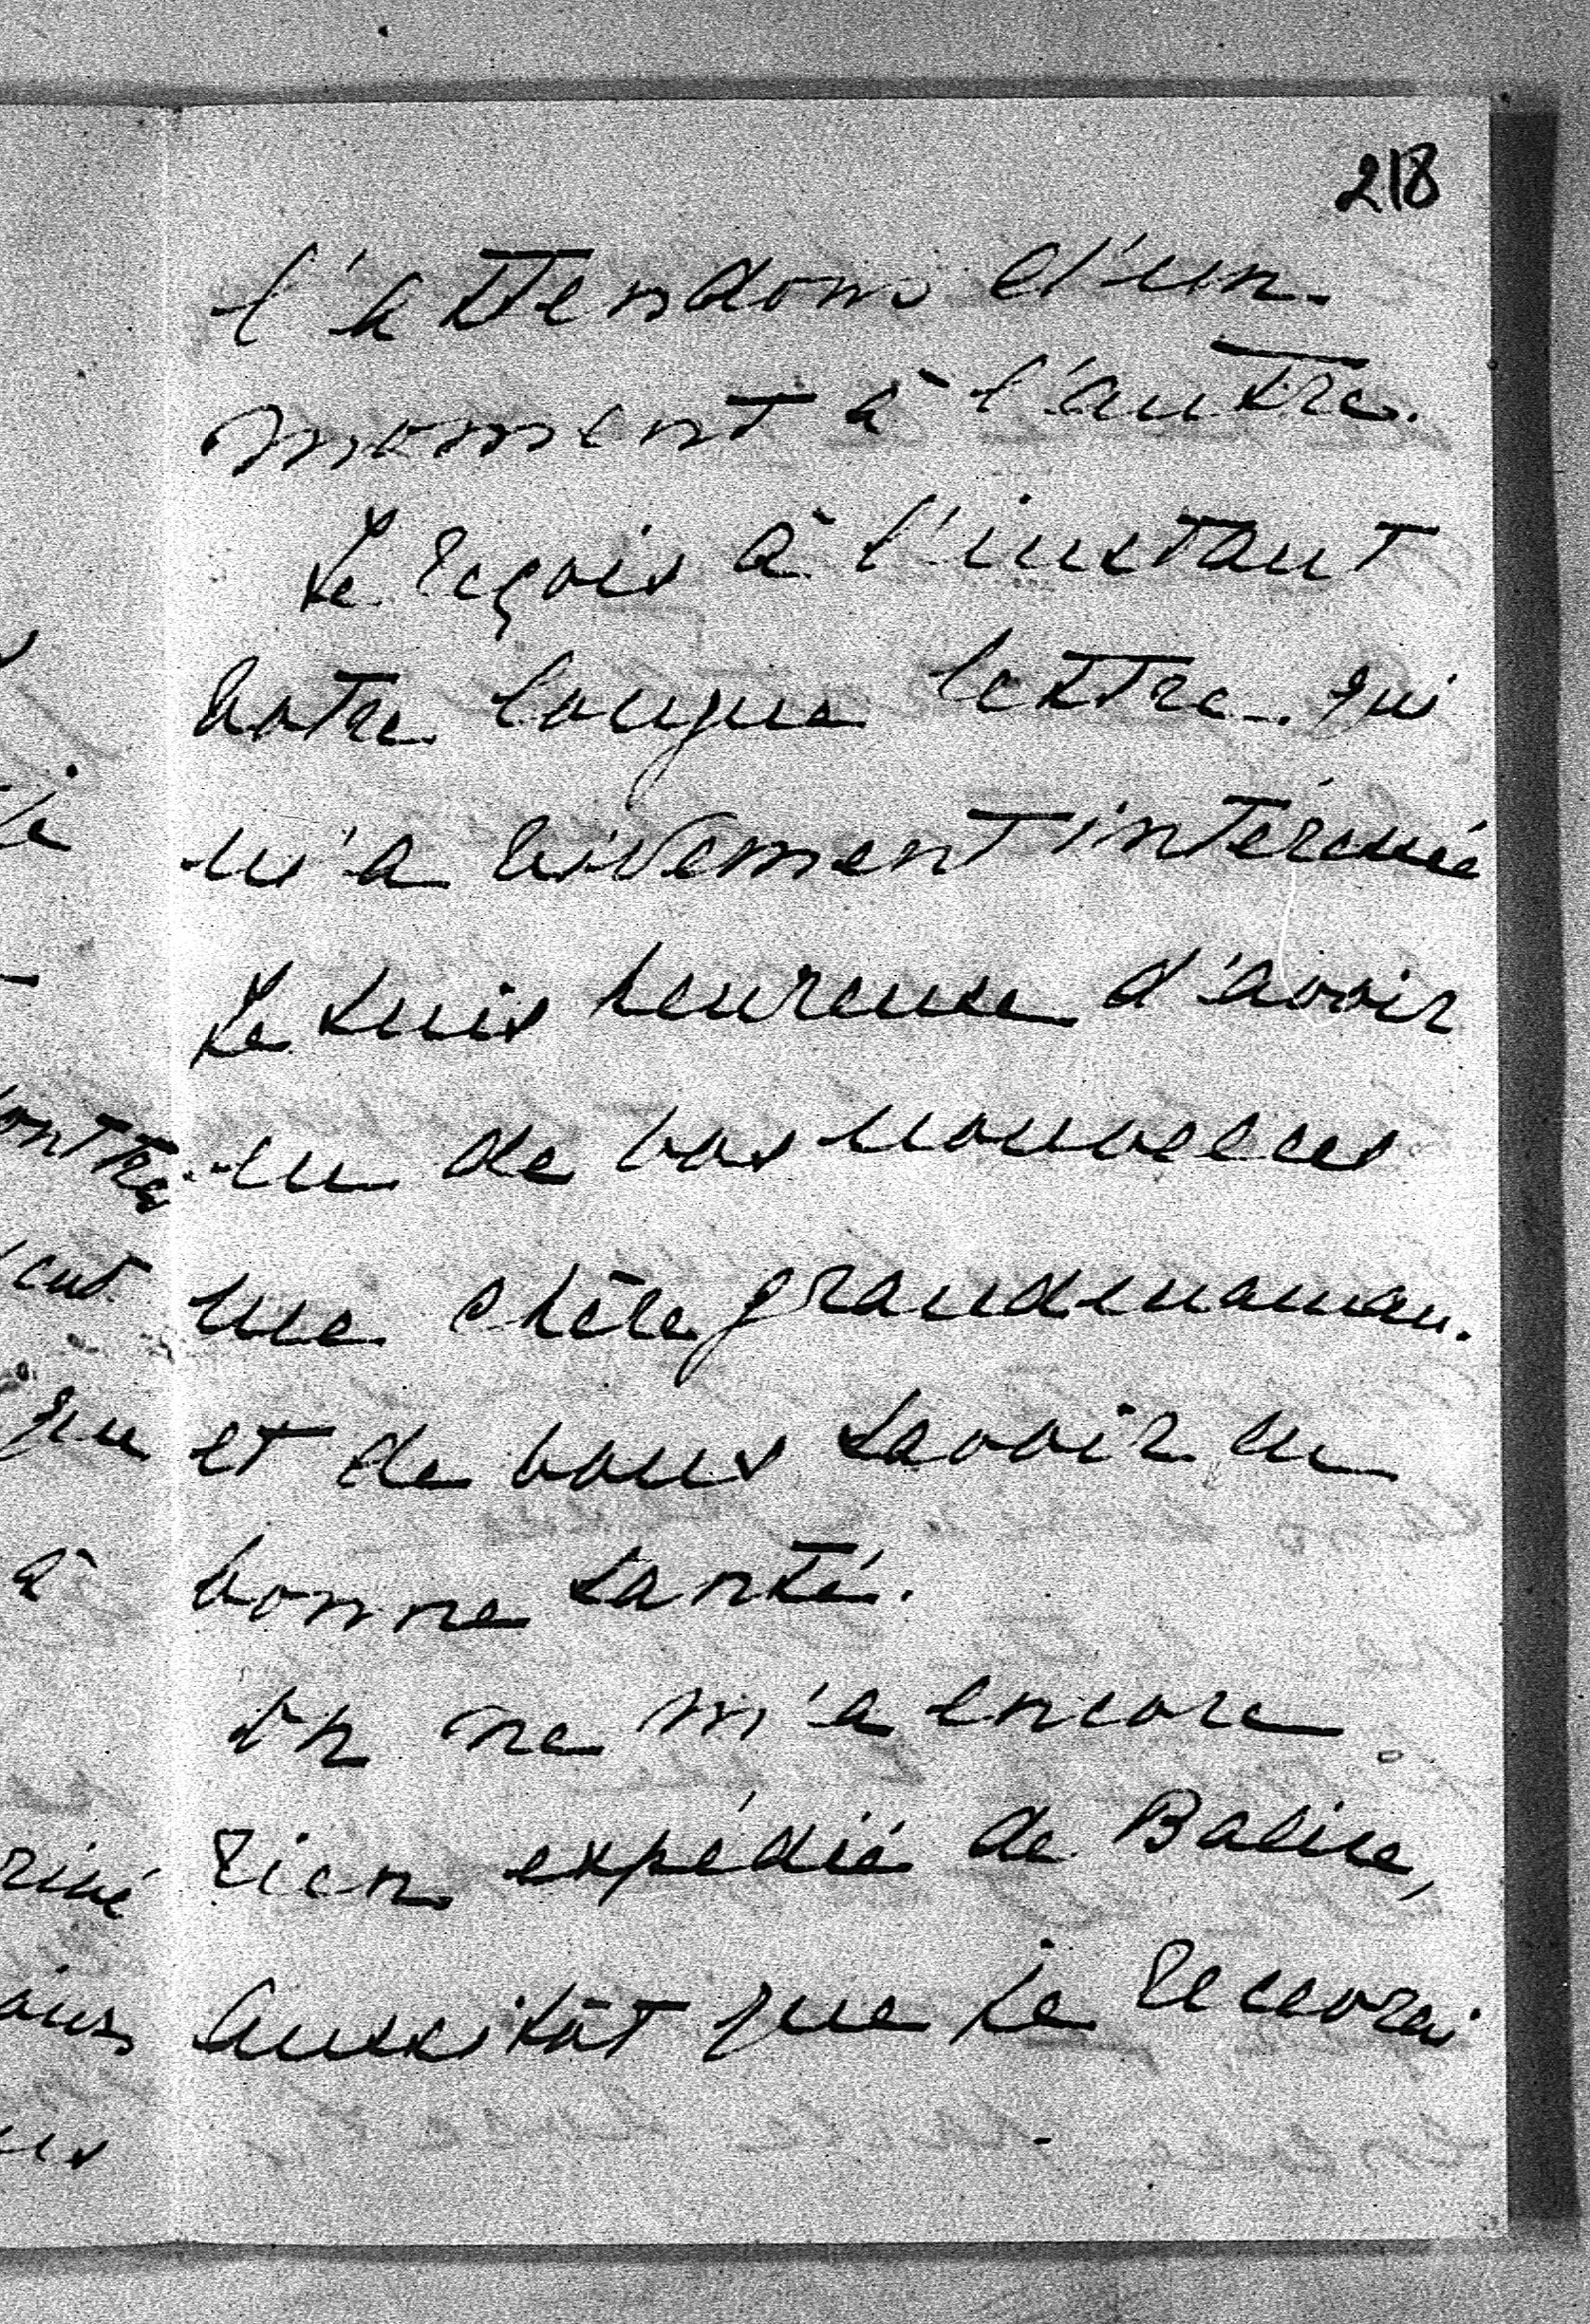 218
l'attendons d'un
moment à l'autre.
Je reçois à l'instant
votre longue lettre qui
m'a vivement intéressée
Je suis heureuse d'avoir
eu de vos nouvelles
ma chère grandmaman.
et de vous savoir en
bonne santé.
On ne m'a encore
rien expédié de
aussitôt que je recevrai